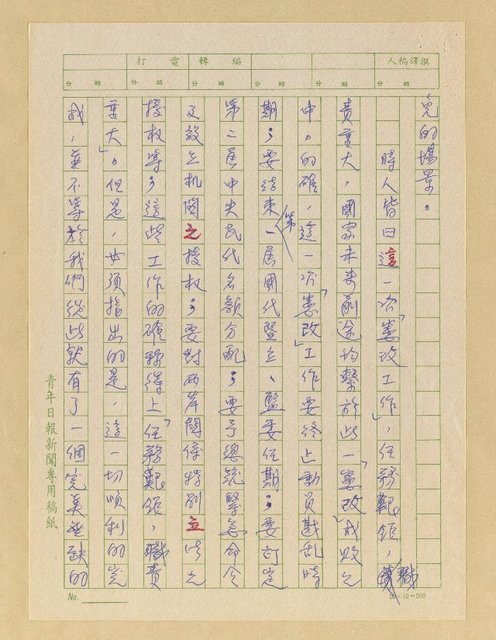 撰譯稿人 編輯 電 打
時 分 時 分 時 分 時 分
兒的場景。
時人皆曰這一次「憲改工作」,任務艱鉅,職
責重大,國家未來前途均繫於此一「憲改」成敗之
中。的確,這一次「憲改」工作要終止動員戡亂時
期;要結束第一屆國代暨立、監委任期;要訂定
第二屆中央民代名額分配;要予總統緊急命令
及效立机關之授權;要對兩岸關係特別立法之
授權等;這些工作的確稱得上「任務艱鉅,職責
重大」。但是,必須指出的是,這一切順利的完
成,並不等於我們從此就有了一個完美無缺的
青年日報新聞專用稿紙
No.